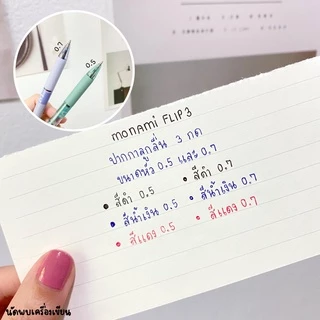 0.7
0.5
monami FLIP 3
ปากกาลูกลื่น 3 กด
ขนาดหัว 0.5 และ 0.7
• สีดำ 0.5 • สีดำ 0.7
• สีน้ำเงิน 0.5 • สีน้ำเงิน 0.7
• สีแดง 0.5 • สีแดง 0.7
นัดพบเครื่องเขียน